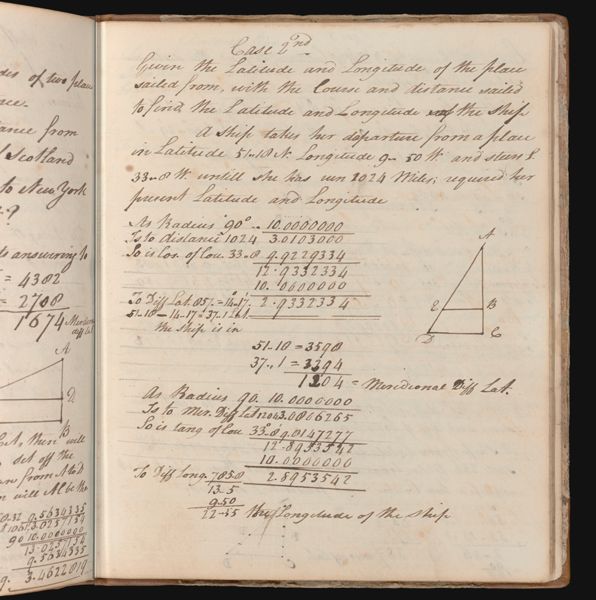 des of two places
ance from
Scotland
to New York
ds answering to
= 4382
= 2708
1674 Meridional diff Lat.
A
D
B
A, then will
set off the
from A to D
will AB be the
9.5634335
3.0257154
90 10.0000000
13.0257154
9.5634335
3.4622819
Case 2nd
Given the Latitude and Longitude of the place
sailed from, with the Course and distance sailed
to find the Latitude and Longitude of the Ship
A Ship takes her departure from a place
in Latitude 51..18 N. Longitude 9..50 W. and steers S.
33..8 W. untill she has run 1024 Miles; required her
present Latitude and Longitude
As Radius 90° .. 10.0000000
Is to distance 1024 3.0103000
So is Cos. of Cou. 33..8 9.9229334
12.9332334
10.0000000
To Diff Lat. 857. = 14..17. 2.9332334
51..18 – 14..17 = 37..1
the Ship is in
A
E B
D C
51..18 = 3598
37..1 = 2394
1204 = Meridional Diff Lat.
As Radius 90. 10.0000000
Is to Mer. Diff Lat 1204 3.0806265
So is tang of Cou 33..8 9.8147277
12.8953542
10.0000000
To Diff Long. 785.8 2.8953542
13..5
9..50
22..55 the Longitude of the Ship